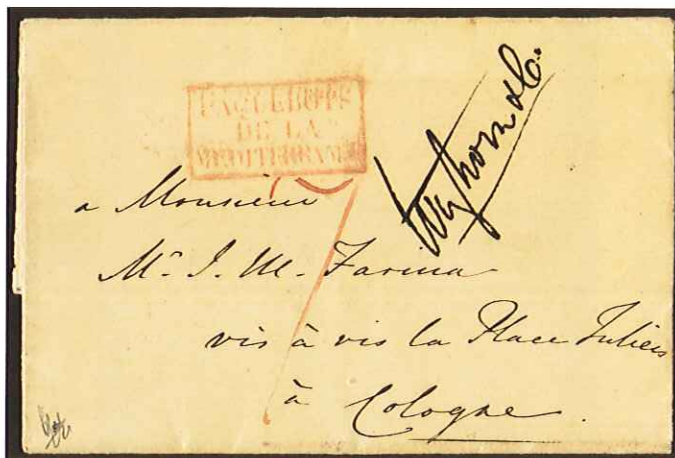 PAQUEBOTS
DE LA
MEDITERRANEE
a Monsieur
Mr. J. M. Farina
vis à vis la Place Juliers
à Cologne.